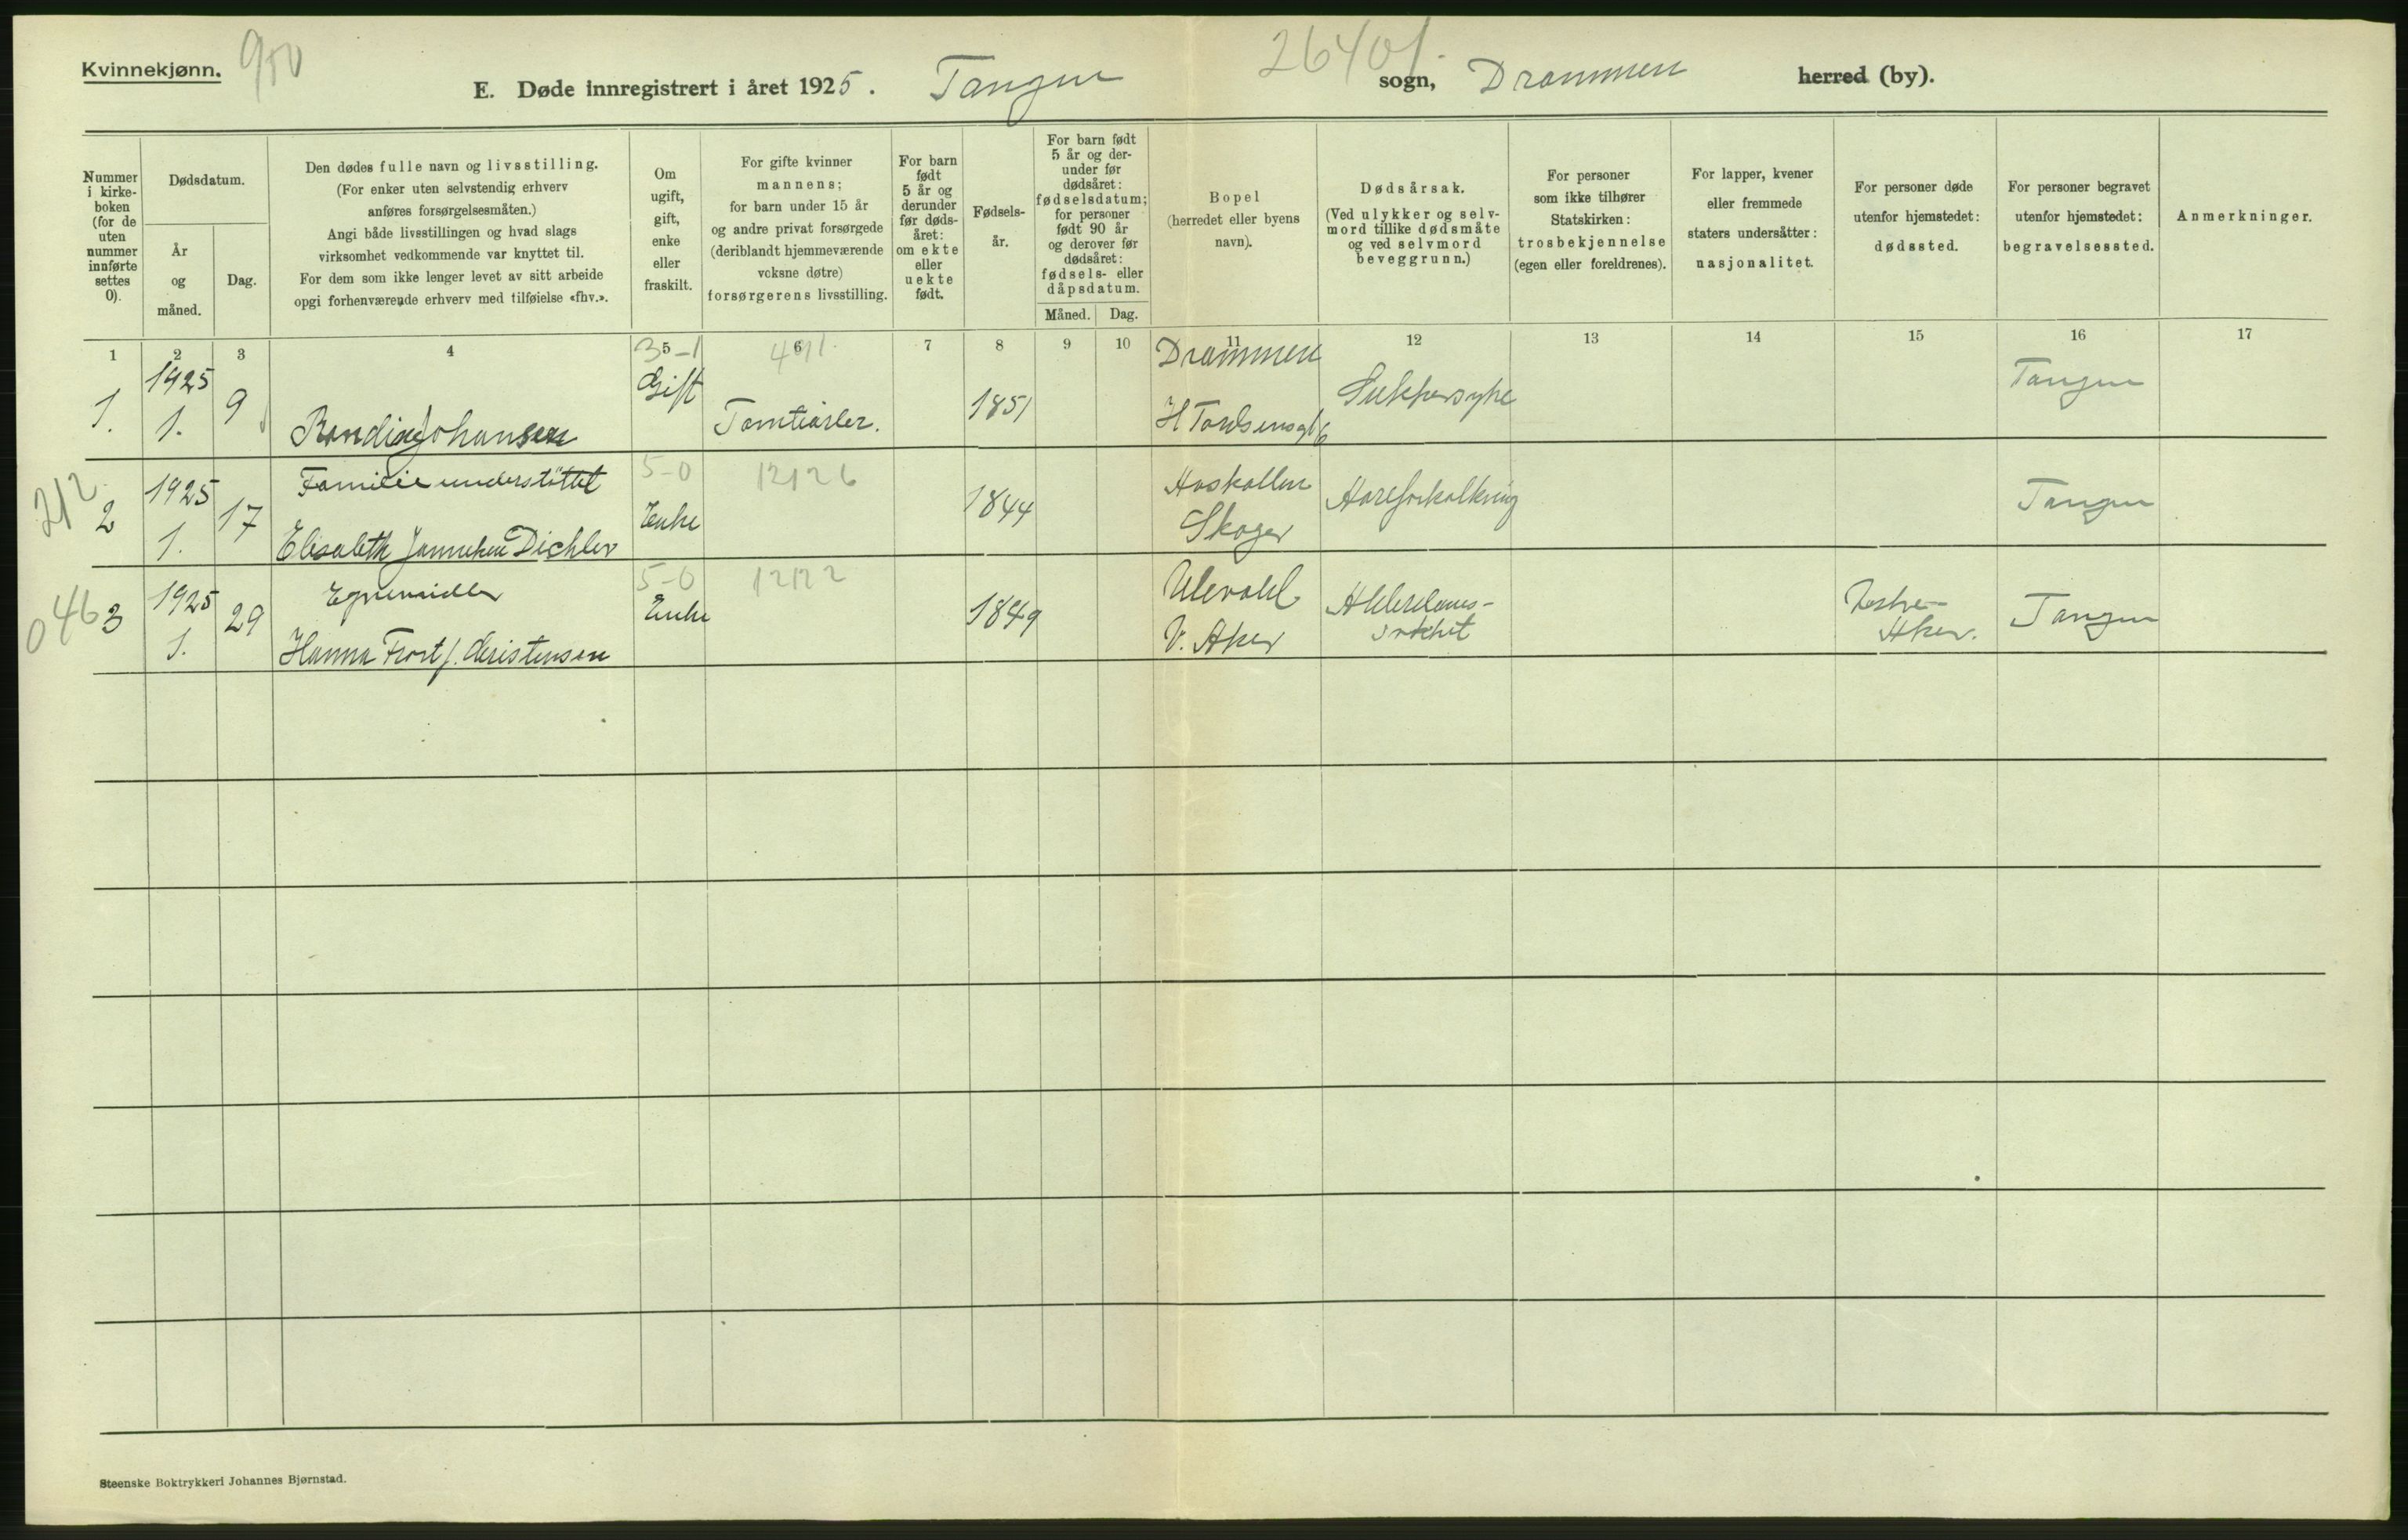 Kvinnekjønn.
950
26401.
E. Døde innregistrert i året 1925. Tangen sogn, Drammen herred (by).
Nummer i kirkeboken (for de uten nummer innførte settes 0).
Dødsdatum.
År og måned.
Dag.
Den dødes fulle navn og livsstilling.
(For enker uten selvstendig erhverv
anføres forsørgelsesmåten.)
Angi både livsstillingen og hvad slags
virksomhet vedkommende var knyttet til.
For dem som ikke lenger levet av sitt arbeide
opgi forhenværende erhverv med tilføielse «fhv.».
Om
ugift,
gift,
enke
eller
fraskilt.
For gifte kvinner
mannens;
for barn under 15 år
og andre privat forsørgede
(deriblandt hjemmeværende
voksne døtre)
forsørgerens livsstilling.
For barn
født
5 år og
derunder
før døds-
året:
om ekte
eller
uekte
født.
Fødsels-
år.
For barn født
5 år og der-
under før
dødsåret:
fødselsdatum;
for personer
født 90 år
og derover før
dødsåret:
fødsels- eller
dåpsdatum.
Måned. Dag.
Bopel
(herredet eller byens
navn).
Dødsårsak.
(Ved ulykker og selv-
mord tillike dødsmåte
og ved selvmord
beveggrunn.)
For personer
som ikke tilhører
Statskirken:
trosbekjennelse
(egen eller foreldrenes).
For lapper, kvener
eller fremmede
staters undersåtter:
nasjonalitet.
For personer døde
utenfor hjemstedet:
dødssted.
For personer begravet
utenfor hjemstedet:
begravelsessted.
Anmerkninger.
1 2 3 4 5 6 7 8 9 10 11 12 13 14 15 16 17
3-1
1. 1925 1. 9
Randine Johansen
Gift
Tomtearler.
1851
Drammen
Sukkersyke
Tangen
212
2 1925 1. 17
Familie understöttet
Elisabeth Janneken Dichler
5-0
Enke
12126
1844
Aaskollen
Skoger
Aareforkalkning
Tangen
046
3 1925 1. 29
Egne midler
Hanna Frost f. Christensen
5-0
Enke
12122
1849
Ulevold
V. Aker
Alderdoms-
svakhet
Vestre-
Aker.
Tangen
Steenske Boktrykkeri Johannes Bjørnstad.